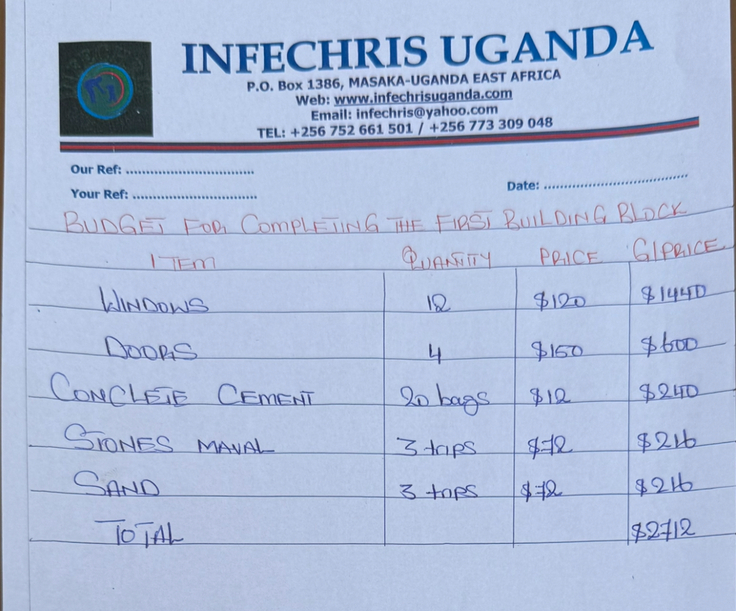 INFECHRIS UGANDA
P.O. Box 1386, MASAKA-UGANDA EAST AFRICA
Web: www.infechrisuganda.com
Email: infechris@yahoo.com
TEL: +256 752 661 501 / +256 773 309 048
Our Ref: ................................
Your Ref: ...............................
Date: ....................................
BUDGET FOR COMPLETING THE FIRST BUILDING BLOCK
ITEM QUANTITY PRICE G/PRICE
WINDOWS 12 $120 $1440
DOORS 4 $150 $600
CONCLETE CEMENT 20 bags $12 $240
STONES MAVAL 3 trips $72 $216
SAND 3 trips $72 $216
TOTAL $2712